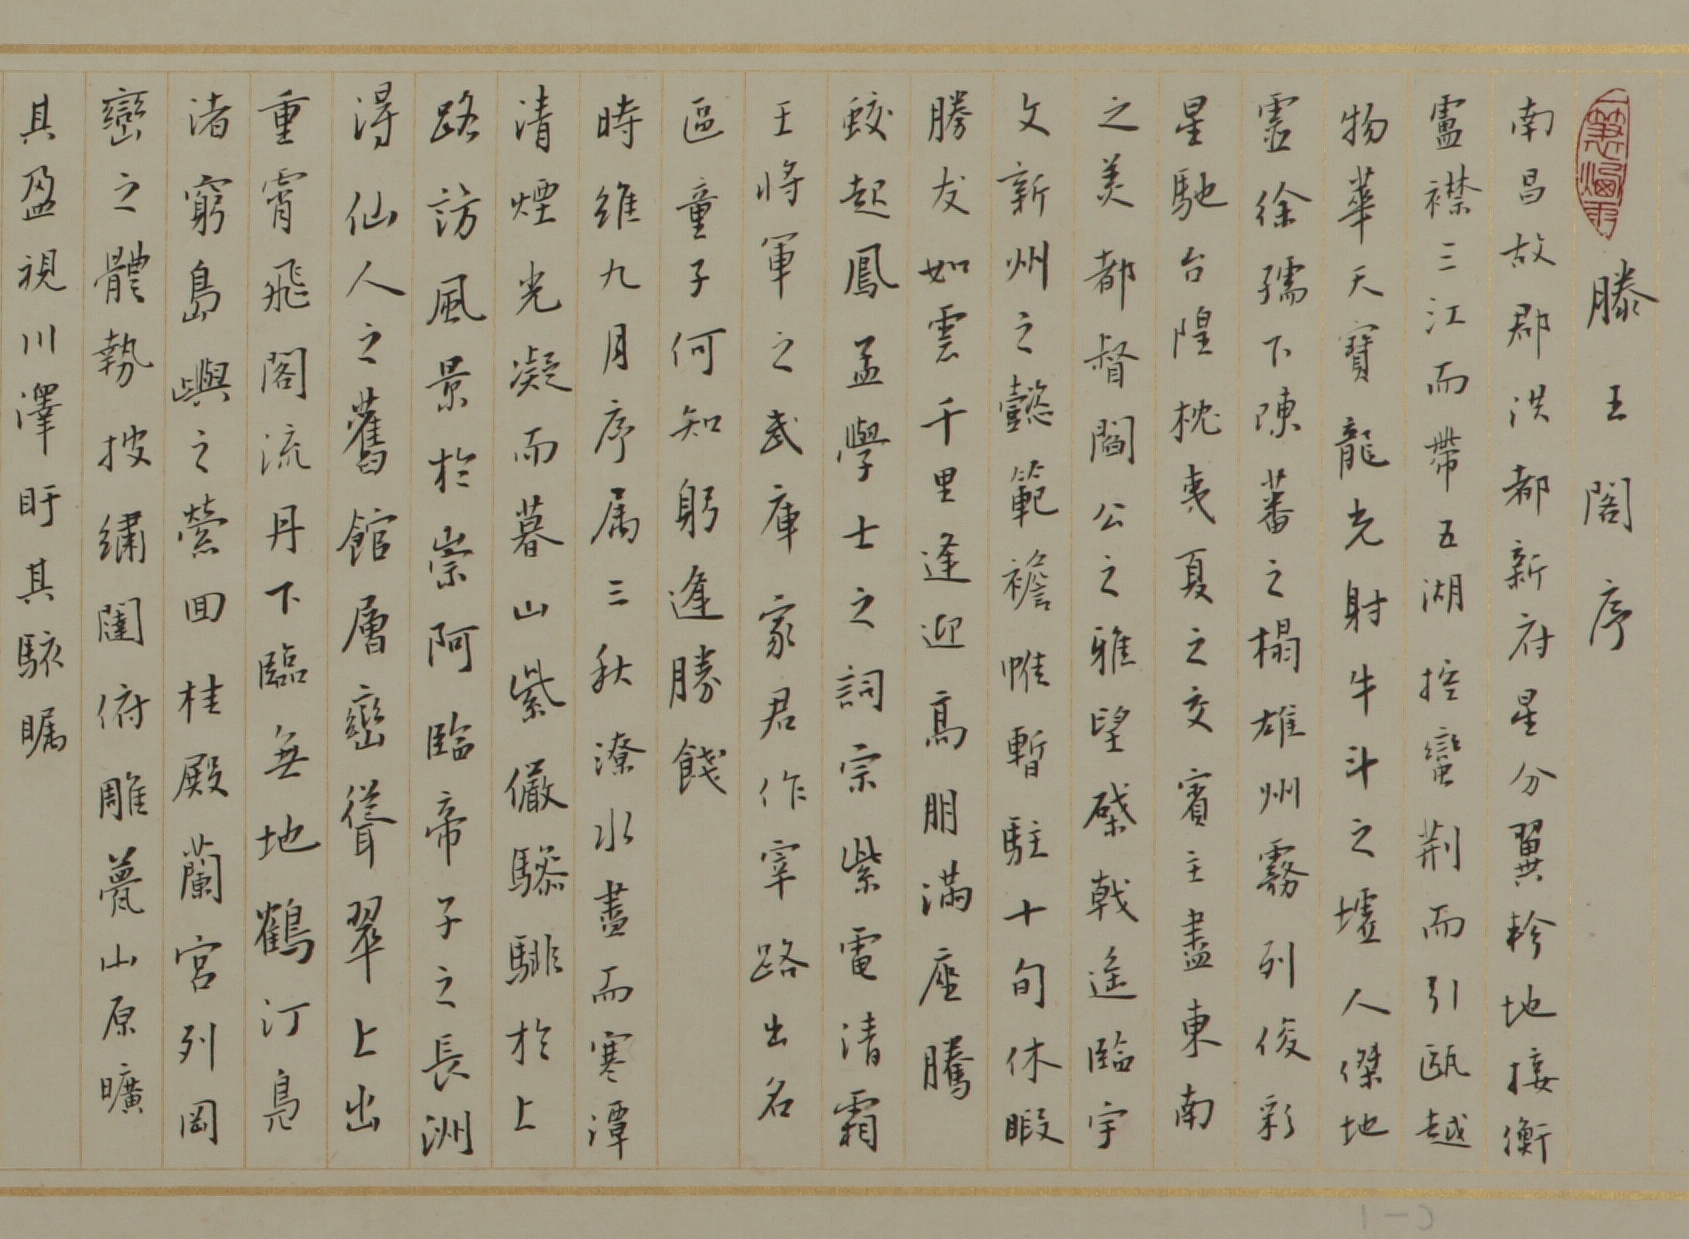 滕王閣序
南昌故郡洪都新府星分翼軫地接衡
廬襟三江而帶五湖控蠻荆而引甌越
物華天寶龍光射牛斗之墟人傑地
靈徐孺下陳蕃之榻雄州霧列俊彩
星馳台隍枕夷夏之交賓主盡東南
之美都督閻公之雅望棨戟遙臨宇
文新州之懿範襜帷暫駐十旬休暇
勝友如雲千里逢迎高朋滿座騰
蛟起鳳孟學士之詞宗紫電清霜
王將軍之武庫家君作宰路出名
區童子何知躬逢勝餞
時維九月序属三秋潦水盡而寒潭
清煙光凝而暮山紫儼驂騑於上
路訪風景於崇阿臨帝子之長洲
得仙人之舊館層巒聳翠上出
重霄飛閣流丹下臨無地鶴汀鳧
渚窮島嶼之縈回桂殿蘭宮列岡
巒之體勢披繡闥俯雕甍山原曠
其盈視川澤盱其駭矚
C-1